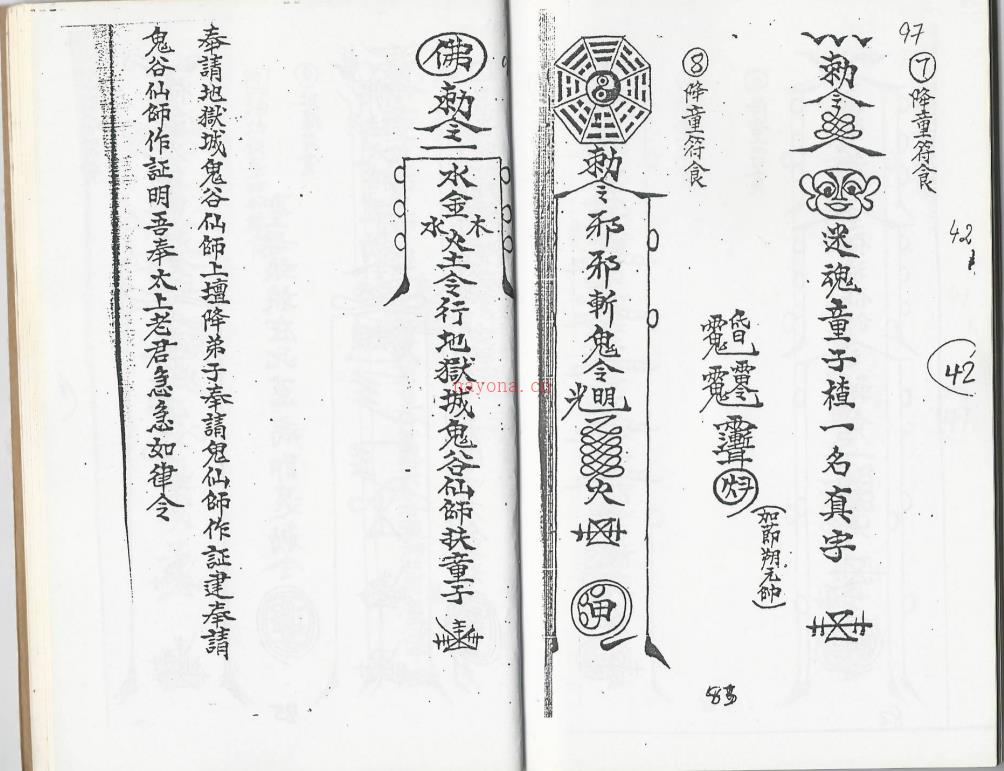 97
⑦降童符食
勅令
迷魂童子楂一名真字
42
42
(如節翔元帥)
⑧降童符食
勅令邪邪斬鬼令明光
火
83
佛勅令
水金木水火土令行地獄城鬼谷仙師扶童子
奉請地獄城鬼谷仙師上壇降弟子奉請鬼仙師作証建奉請
鬼谷仙師作証明吾奉太上老君急急如律令
nayona.cn